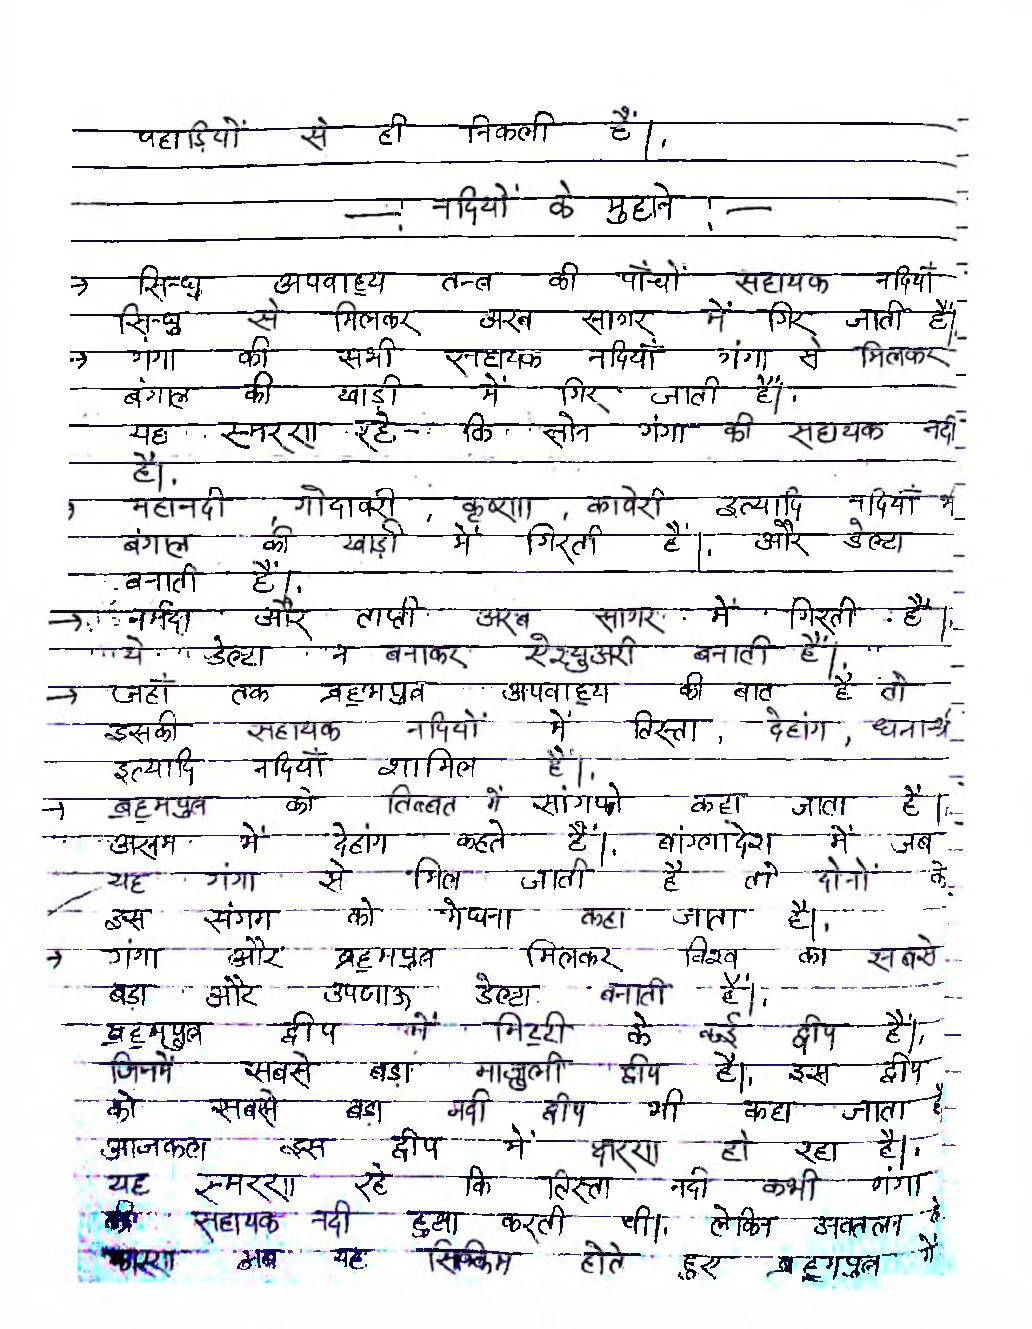 पहाड़ियों से ही निकली हैं।
—: नदियों के मुहाने :—
→ सिन्धु अपवाह्य तन्त्र की पाँचों सहायक नदियाँ
सिन्धु से मिलकर अरब सागर में गिर जाती हैं।
→ गंगा की सभी सहायक नदियाँ गंगा से मिलकर
बंगाल की खाड़ी में गिर जाती हैं।
यह स्मरण रहे कि सोन गंगा की सहायक नदी
है।
→ महानदी, गोदावरी, कृष्णा, कावेरी इत्यादि नदियाँ
बंगाल की खाड़ी में गिरती हैं। और डेल्टा
बनाती हैं।
→ नर्मदा और ताप्ती अरब सागर में गिरती हैं।
ये डेल्टा न बनाकर ऐश्चुअरी बनाती हैं।
→ जहाँ तक ब्रह्मपुत्र अपवाह्य की बात है तो
इसकी सहायक नदियों में तिस्ता, देहांग,
इत्यादि नदियाँ शामिल हैं।
→ ब्रह्मपुत्र को तिब्बत में सांगपो कहा जाता है।
असम में देहांग कहते हैं। बांग्लादेश में जब
यह गंगा से मिल जाती है तो दोनों के
इस संगम को मेघना कहा जाता है।
→ गंगा और ब्रह्मपुत्र मिलकर विश्व का सबसे
बड़ा और उपजाऊ डेल्टा बनाती हैं।
ब्रह्मपुत्र द्वीप में मिट्टी के कई द्वीप हैं।
जिनमें सबसे बड़ा माजुली द्वीप है। इस द्वीप
को सबसे बड़ा नदी द्वीप भी कहा जाता है
आजकल इस द्वीप में क्षरण हो रहा है।
यह स्मरण रहे कि तिस्ता नदी कभी गंगा
की सहायक नदी हुआ करती थी। लेकिन अवतलन के
कारण अब यह सिक्किम होते हुए ब्रह्मपुत्र में